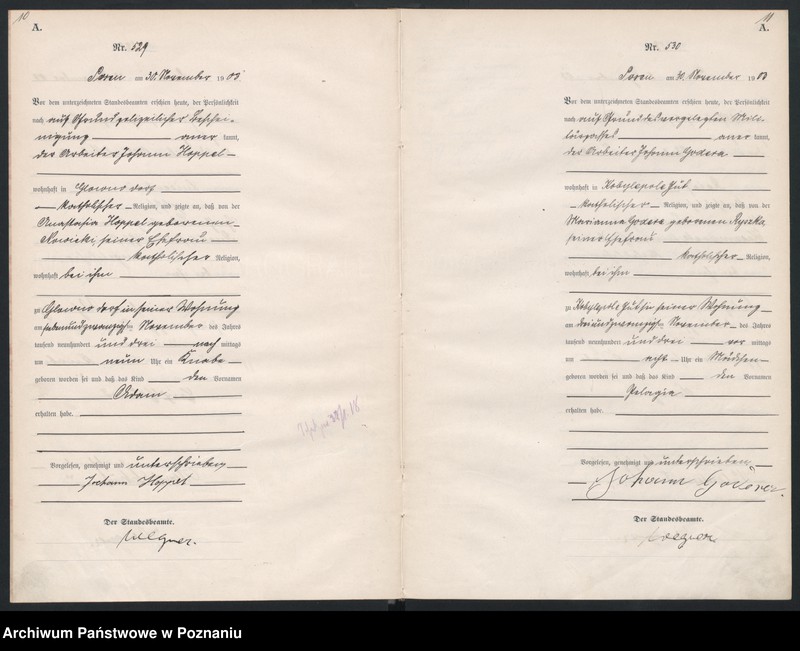 10
A.
Nr. 529
Posen am 30. November 1903
Vor dem unterzeichneten Standesbeamten erschien heute, der Persönlichkeit
nach auf Grund gelegentlicher Beschei-
nigung anerkannt,
der Arbeiter Johann Hoppel
wohnhaft in Glowno Dorf
katholischer Religion, und zeigte an, daß von der
Anastasia Hoppel geborenen
Nowicki, seiner Ehefrau
katholischer Religion,
wohnhaft bei ihm
zu Glowno Dorf in seiner Wohnung
am siebenundzwanzigsten November des Jahres
tausend neunhundert und drei nachmittags
um neun Uhr ein Knabe
geboren worden sei und daß das Kind den Vornamen
Adam
erhalten habe.
Vorgelesen, genehmigt und unterschrieben
Johann Hoppel
Der Standesbeamte.
Wegner.
11
A.
Nr. 530
Posen am 30. November 1903
Vor dem unterzeichneten Standesbeamten erschien heute, der Persönlichkeit
nach auf Grund des vorgelegten Mili-
tärpasses anerkannt,
der Arbeiter Johann Godera
wohnhaft in Kobylepole Gut
katholischer Religion, und zeigte an, daß von der
Marianna Godera geborenen
seiner Ehefrau
katholischer Religion,
wohnhaft bei ihm
zu Kobylepole Gut in seiner Wohnung
am dreiundzwanzigsten November des Jahres
tausend neunhundert und drei vormittags
um acht Uhr ein Mädchen
geboren worden sei und daß das Kind den Vornamen
Pelagia
erhalten habe.
Vorgelesen, genehmigt und unterschrieben
Johann
Der Standesbeamte.
Wegner
Archiwum Państwowe w Poznaniu